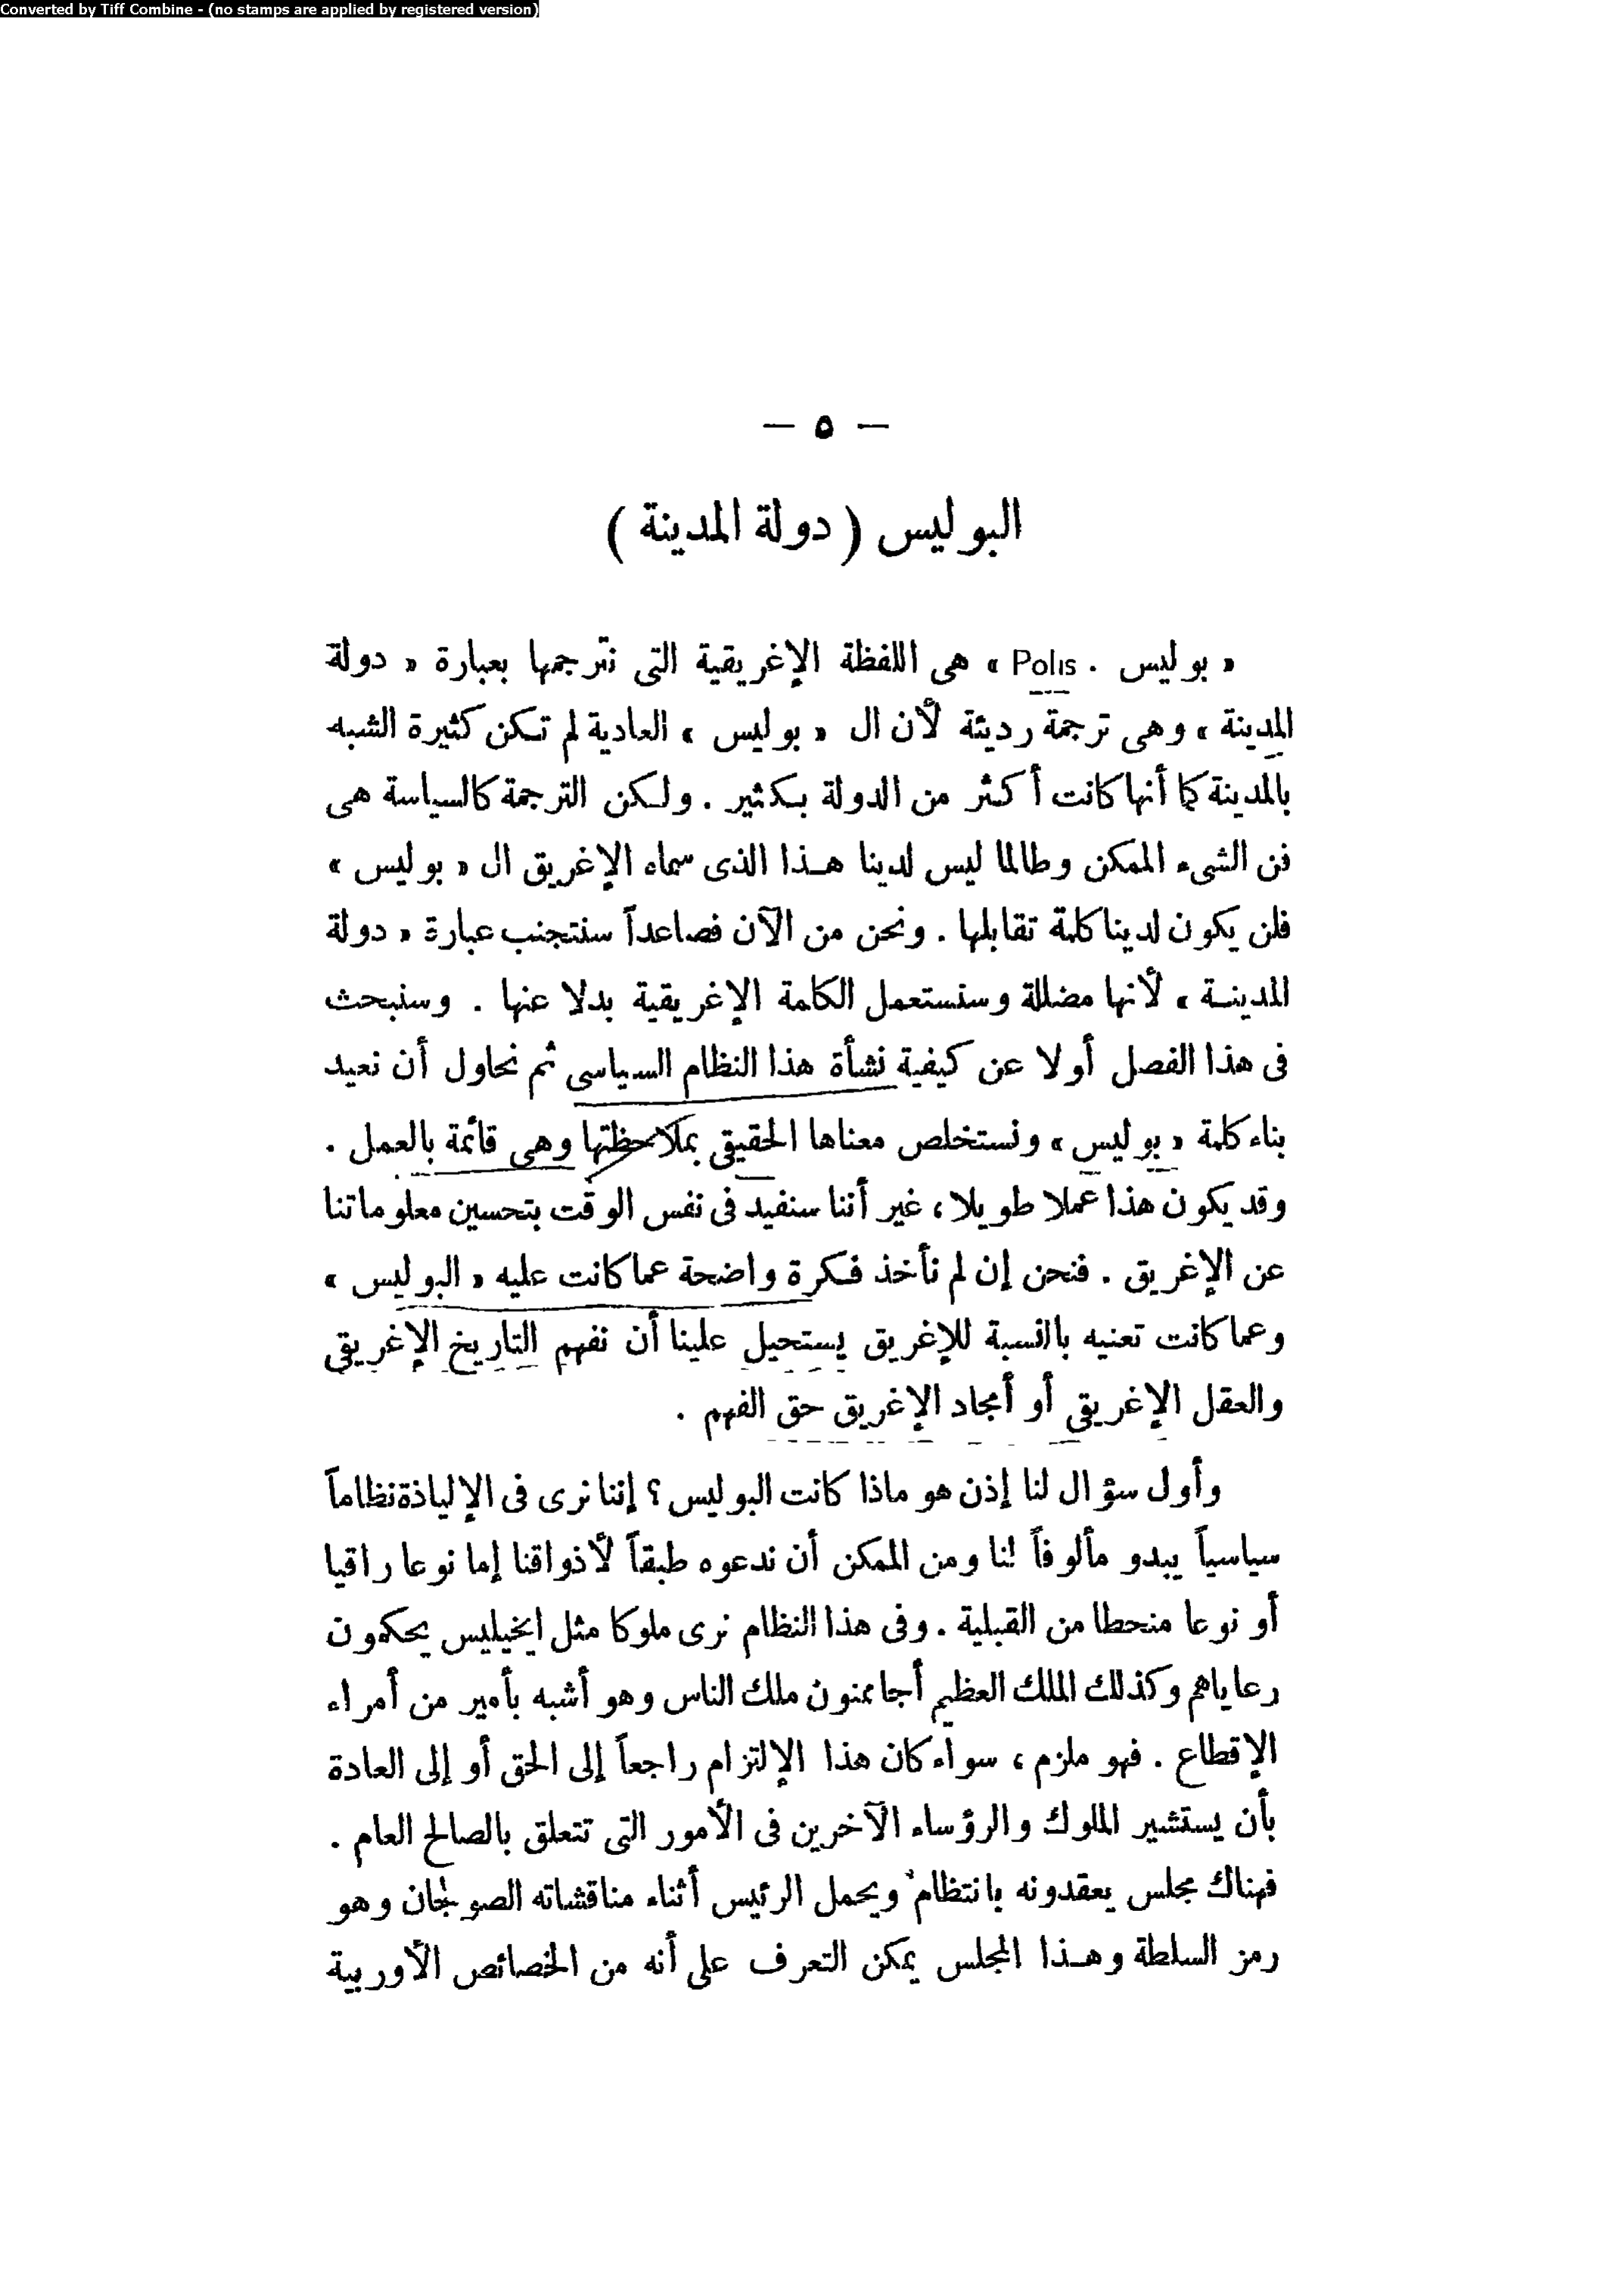 Converted by Tiff Combine - (no stamps are applied by registered version)
— ٥ —
البوليس ( دولة المدينة )
« بوليس . Polis » هى اللفظة الإغريقية التى نترجمها بعبارة « دولة
المدينة » وهى ترجمة رديئة لأن ال « بوليس » العادية لم تكن كثيرة الشبه
بالمدينة كما أنها كانت أكثر من الدولة بكثير . ولكن الترجمة كالسياسة هى
فن الشىء الممكن وطالما ليس لدينا هذا الذى سماه الإغريق ال « بوليس »
فلن يكون لدينا كلمة تقابلها . ونحن من الآن فصاعداً سنتجنب عبارة « دولة
المدينة » لأنها مضللة وسنستعمل الكلمة الإغريقية بدلا عنها . وسنبحث
فى هذا الفصل أولا عن كيفية نشأة هذا النظام السياسى ثم نحاول أن نعيد
بناء كلمة « بوليس » ونستخلص معناها الحقيقى بملاحظتها وهى قائمة بالعمل .
وقد يكون هذا عملا طويلا ، غير أننا سنفيد فى نفس الوقت بتحسين معلوماتنا
عن الإغريق . فنحن إن لم نأخذ فكرة واضحة عما كانت عليه « البوليس »
وعما كانت تعنيه بالنسبة للإغريق يستحيل علينا أن نفهم التاريخ الإغريقى
والعقل الإغريقى أو أمجاد الإغريق حق الفهم .
وأول سؤال لنا إذن هو ماذا كانت البوليس ؟ إننا نرى فى الإلياذة نظاماً
سياسياً يبدو مألوفاً لنا ومن الممكن أن ندعوه طبقاً لأذواقنا إما نوعا راقيا
أو نوعا منحطا من القبلية . وفى هذا النظام نرى ملوكا مثل ايخيليس يحكمون
رعاياهم وكذلك الملك العظيم أجاممنون ملك الناس وهو أشبه بأمير من أمراء
الإقطاع . فهو ملزم ، سواء كان هذا الإلتزام راجعاً إلى الحق أو إلى العادة
بأن يستشير الملوك والرؤساء الآخرين فى الأمور التى تتعلق بالصالح العام .
فهناك مجلس يعقدونه بانتظام ويحمل الرئيس أثناء مناقشاته الصولجان وهو
رمز السلطة وهذا المجلس يمكن التعرف على أنه من الخصائص الأوربية